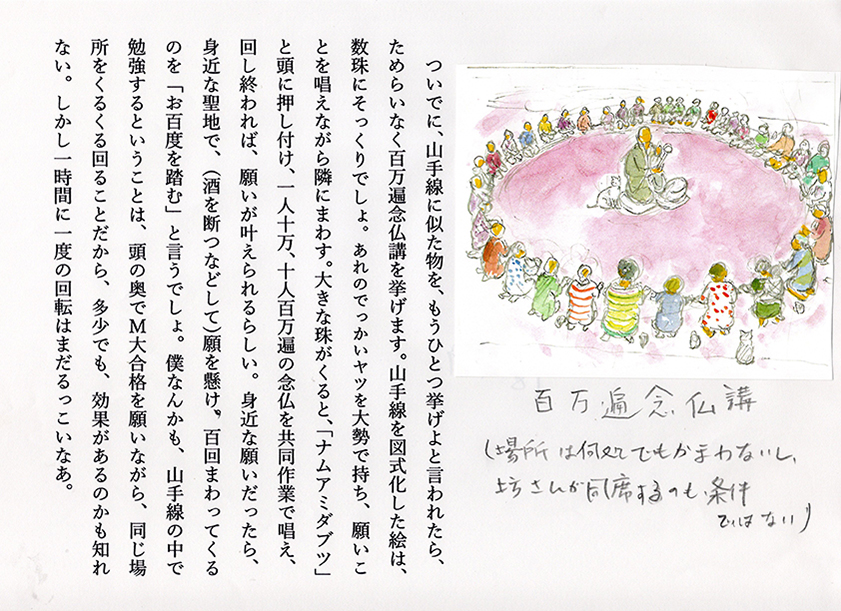 百万遍念仏講
(場所は何処でもかまわないし、
坊さんが同席するのも、条件
ではない)
ついでに、山手線に似た物を、もうひとつ挙げよと言われたら、
ためらいなく百万遍念仏講を挙げます。山手線を図式化した絵は、
数珠にそっくりでしょ。あれのでっかいヤツを大勢で持ち、願いご
とを唱えながら隣にまわす。大きな珠がくると、「ナムアミダブツ」
と頭に押し付け、一人十万、十人百万遍の念仏を共同作業で唱え、
回し終われば、願いが叶えられるらしい。身近な願いだったら、
身近な聖地で、(酒を断つなどして)願を懸け、百回まわってくる
のを「お百度を踏む」と言うでしょ。僕なんかも、山手線の中で
勉強するということは、頭の奥でM大合格を願いながら、同じ場
所をくるくる回ることだから、多少でも、効果があるのかも知れ
ない。しかし一時間に一度の回転はまだるっこいなあ。